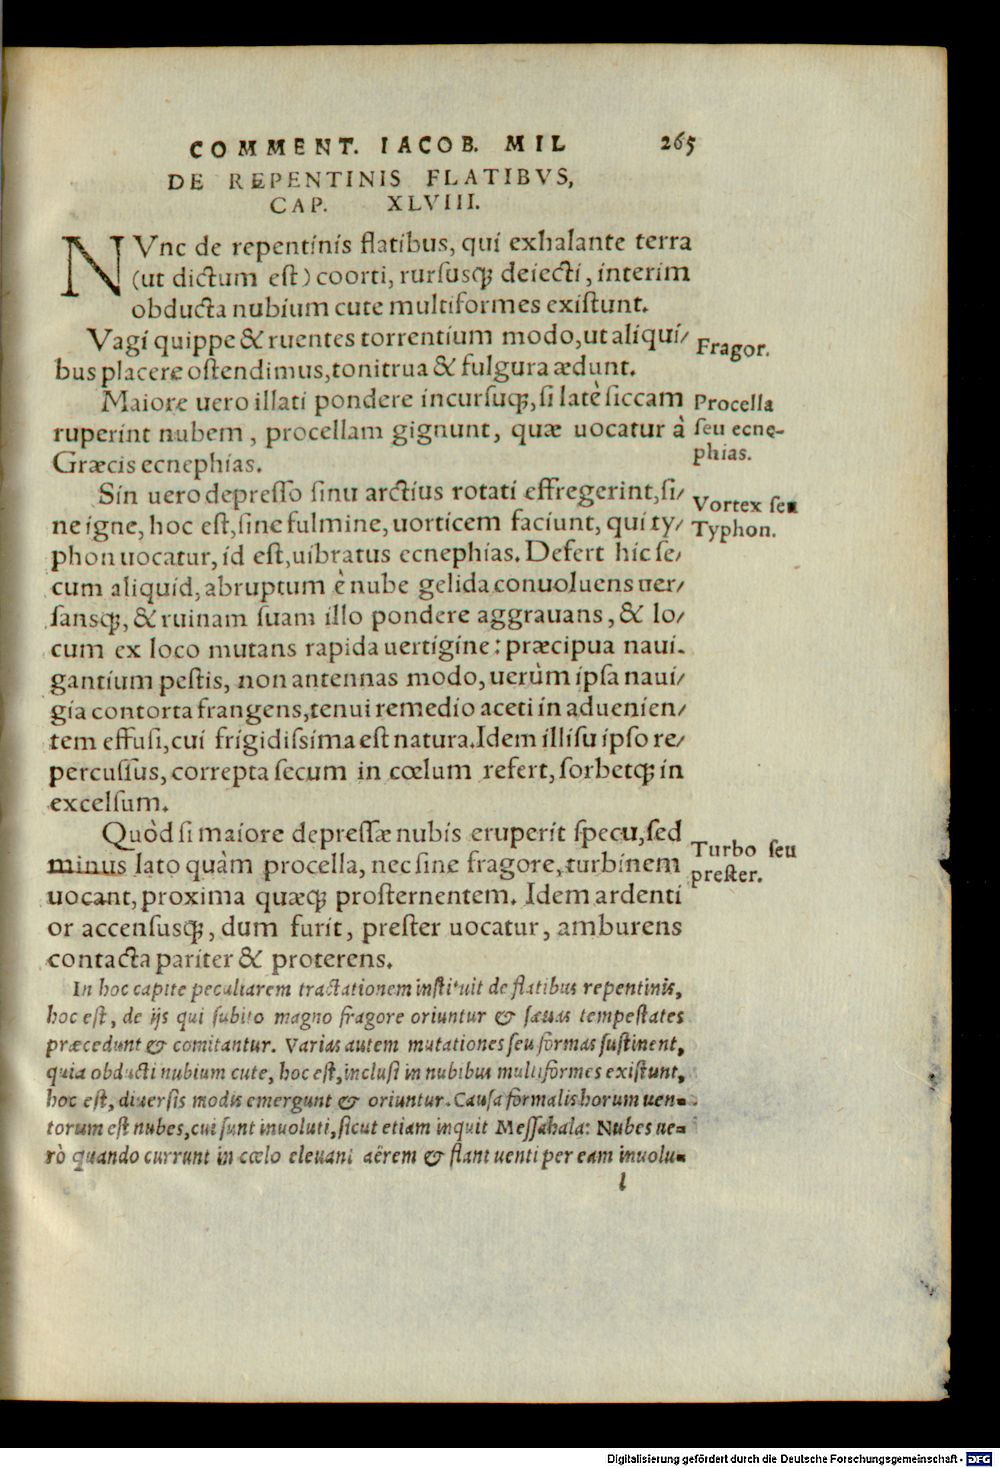 COMMENT. IACOB. MIL 265
DE REPENTINIS FLATIBVS,
CAP. XLVIII.
NVnc de repentinis flatibus, qui exhalante terra
(ut dictum est) coorti, rursusq; deiecti, interim
obducta nubium cute multiformes existunt.
Vagi quippe & ruentes torrentium modo, ut aliqui/
bus placere ostendimus, tonitrua & fulgura ædunt.
Fragor.
Maiore uero illati pondere incursuq;, si latè siccam
ruperint nubem, procellam gignunt, quæ uocatur à
Græcis ecnephias.
Procella
seu ecne-
phias.
Sin uero depresso sinu arctius rotati effregerint, si/
ne igne, hoc est, sine fulmine, uorticem faciunt, qui ty/
phon uocatur, id est, uibratus ecnephias. Defert hic se/
cum aliquid, abruptum è nube gelida conuoluens uer/
sansq;, & ruinam suam illo pondere aggrauans, & lo/
cum ex loco mutans rapida uertigine: præcipua naui-
gantium pestis, non antennas modo, uerùm ipsa naui/
gia contorta frangens, tenui remedio aceti in aduenien/
tem effusi, cui frigidissima est natura. Idem illisu ipso re/
percussus, correpta secum in cœlum refert, sorbetq; in
excelsum.
Vortex seu
Typhon.
Quòd si maiore depressæ nubis eruperit specu, sed
minus lato quàm procella, nec sine fragore, turbinem
uocant, proxima quæq; prosternentem. Idem ardenti
or accensusq;, dum furit, prester uocatur, amburens
contacta pariter & proterens.
Turbo seu
prester.
In hoc capite peculiarem tractationem instituit de flatibus repentinis,
hoc est, de ijs qui subito magno fragore oriuntur & sæuas tempestates
præcedunt & comitantur. Varias autem mutationes seu formas sustinent,
quia obducti nubium cute, hoc est, inclusi in nubibus multiformes existunt,
hoc est, diuersis modis emergunt & oriuntur. Causa formalis horum uen-
torum est nubes, cui sunt inuoluti, sicut etiam inquit Messahala: Nubes ue-
rò quando currunt in cœlo eleuani aërem & flant uenti per eam inuolu-
l
Digitalisierung gefördert durch die Deutsche Forschungsgemeinschaft - DFG